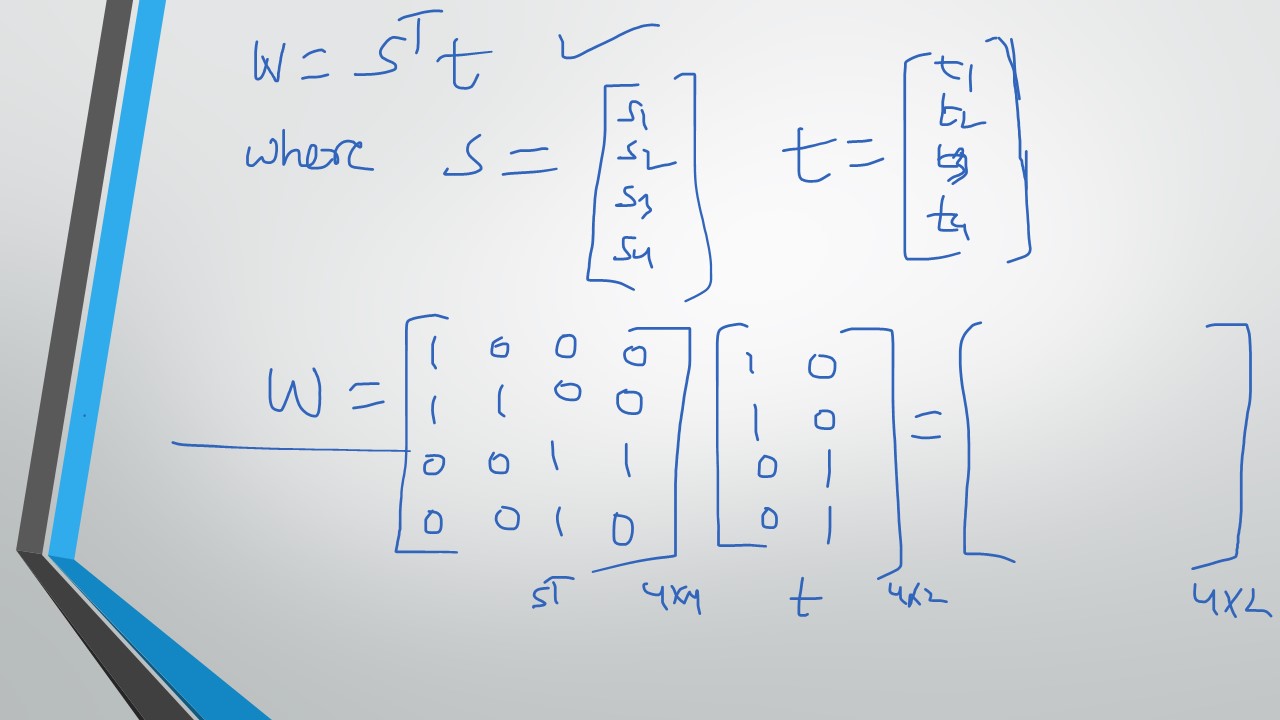 W = Sᵀ t ✓
where S = [s1 s2 s3 s4] t = [t1 t2 t3 t4]
W = [1 0 0 0 [1 0 = [ ]
1 1 0 0 1 0
0 0 1 1 0 1
0 0 1 0] 0 1]
Sᵀ 4x4 t 4x2 4x2